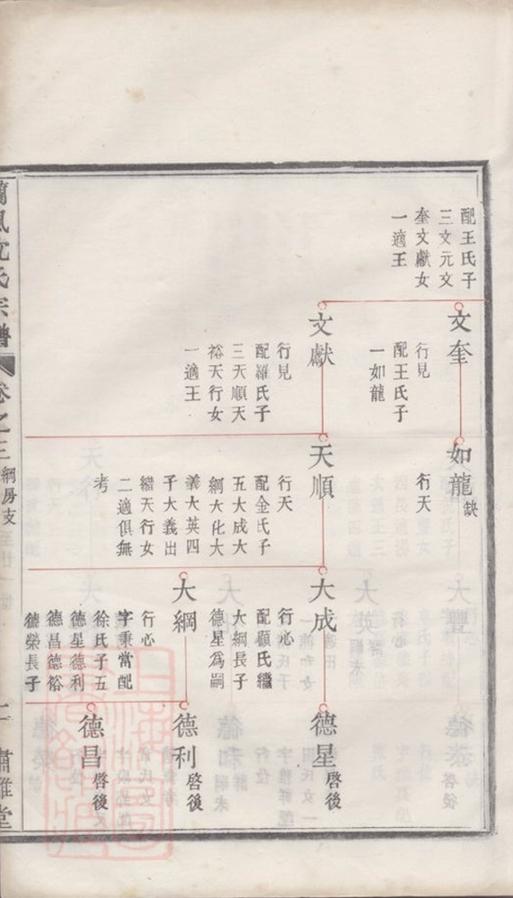 配王氏子
三文元文
奎文獻女
一適王
文奎
行見
配王氏子
一如龍
如龍缺
行天
文獻
行見
配羅氏子
三天順天
裕天行女
一適王
天順
行天
配金氏子
五大成大
綱大化大
義大英四
子大義出
繼天行女
二適俱無
考
大成
行心
配顧氏繼
大綱長子
德星爲嗣
德星啓後
大綱
行心
字秉當配
徐氏子五
德星德利
德昌德裕
德榮長子
德利啓後
德昌啓後
蘭風沈氏宗譜
卷之三
綱房支
二
肅雝堂